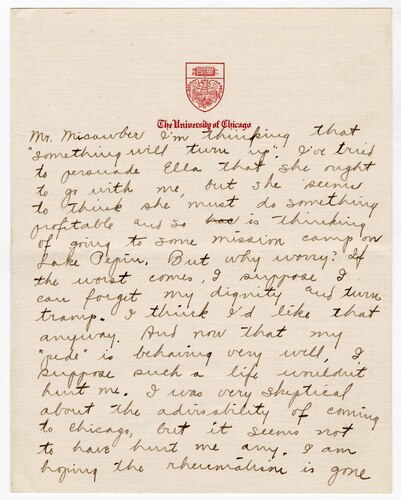 The University of Chicago
Mr. Micawber I'm thinking that
"something will turn up". I've tried
to persuade Ella that she ought
to go with me, but she seems
to think she must do something
profitable and so has is thinking
of going to some mission camp on
Lake Pepin. But why worry? If
the worst comes, I suppose I
can forget my dignity and turn
tramp. I think I'd like that
anyway. And now that my
"pide" is behaving very well, I
suppose such a life wouldn't
hurt me. I was very skeptical
about the advisability of coming
to Chicago, but it seems not
to have hurt me any. I am
hoping the rheumatism is gone